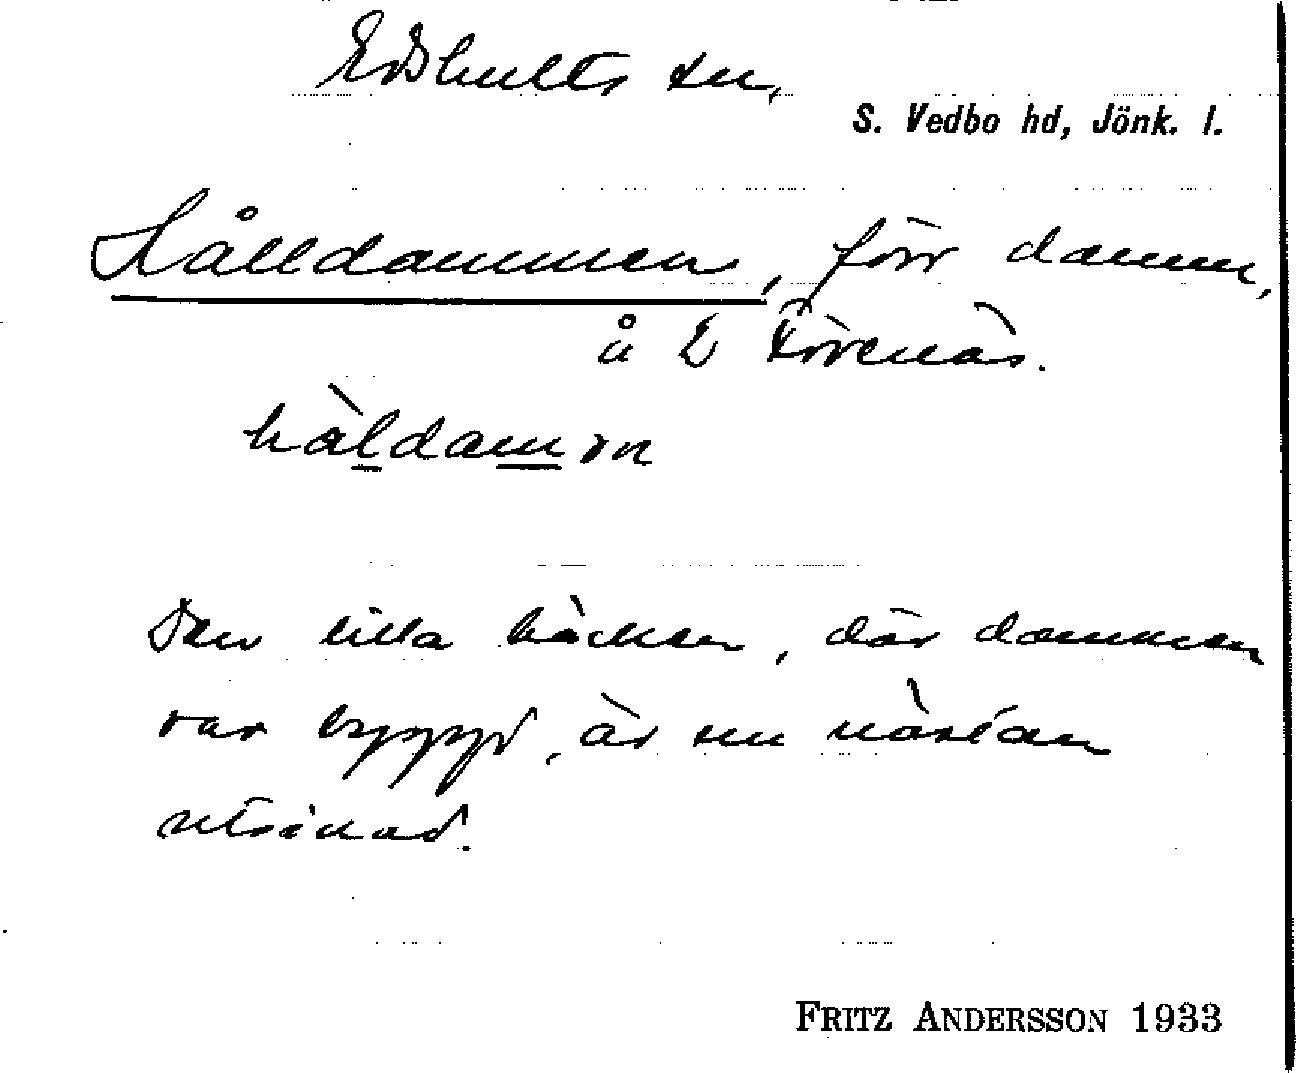 Edshults sn,
S. Vedbo hd, Jönk. l.
Hålldammen, förr damm,
å 2 Förenäs.
hàldamən
Den lilla bäcken, där dammen
var byggd, är nu nästan
utsinad.
FRITZ ANDERSSON 1933